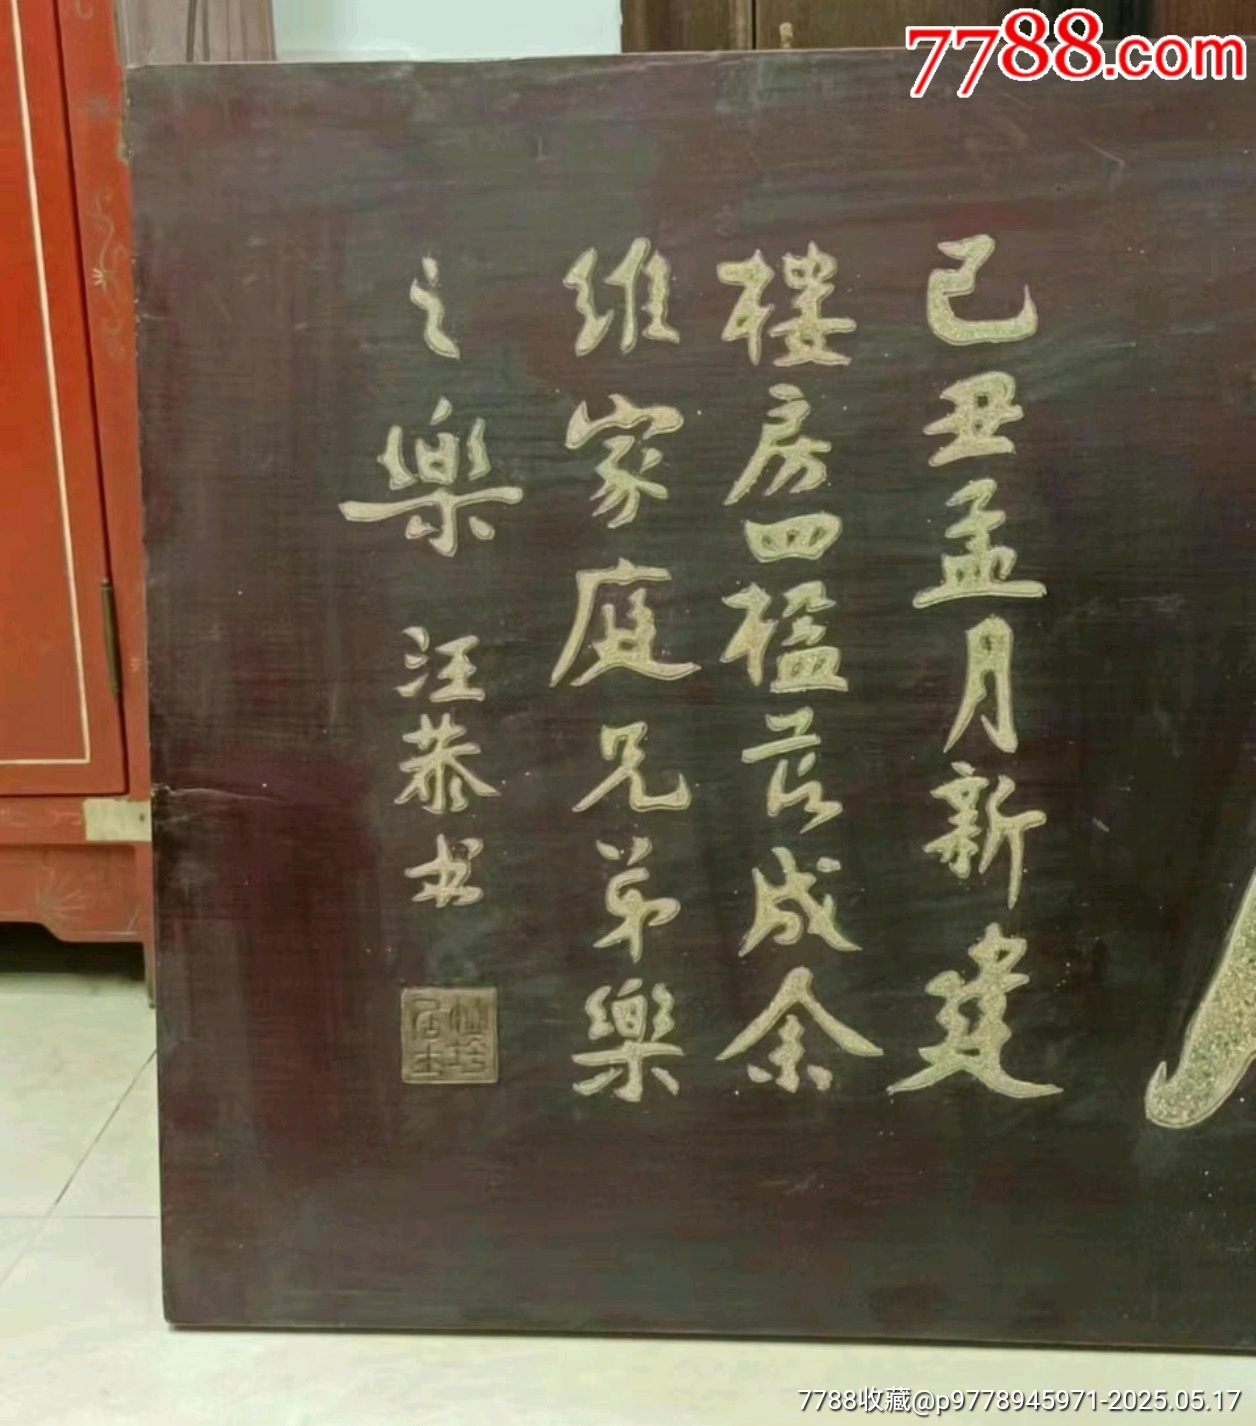 7788.com
己丑孟月新建
楼房四楹落成余
维家庭兄弟樂
之樂 汪恭书
居士
7788收藏@p9778945971-2025.05.17